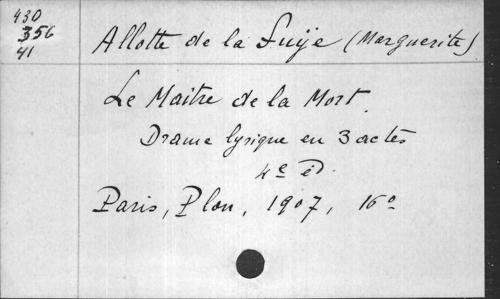 430
356
41
Allotte de la Fuije (Marguerite)
Le Maitre de la Mort.
Drame lyrique en 3 actes
4e éd.
Paris, Plon, 1907, 16o